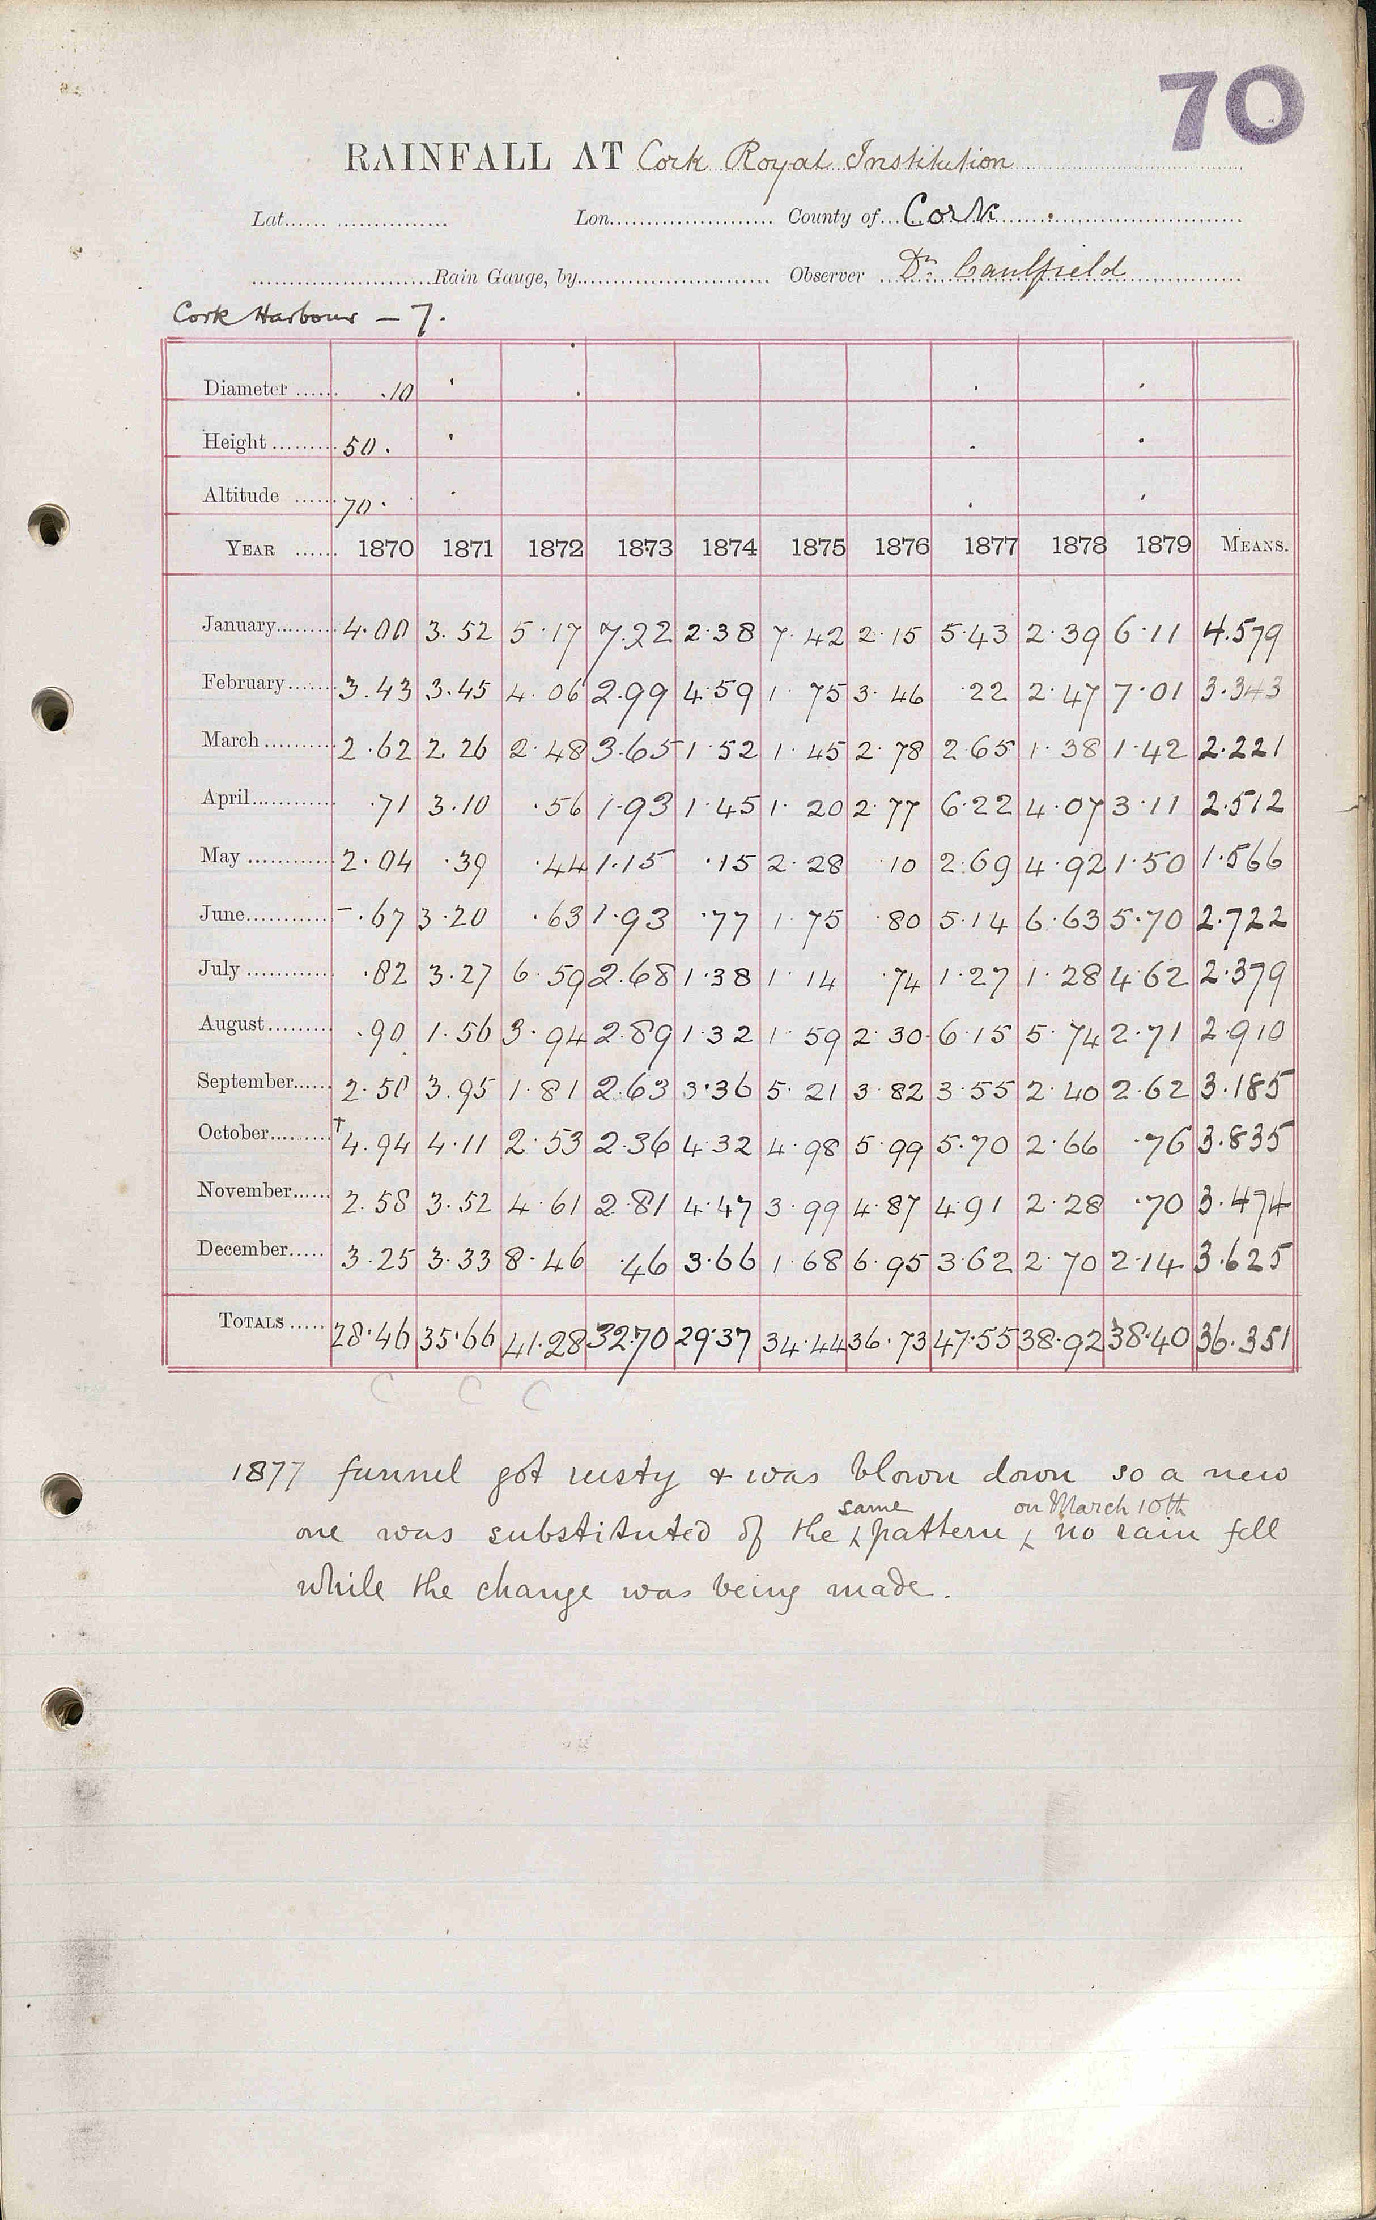 70
RAINFALL AT Cork Royal Institution
Lat. Lon. County of Cork
Rain Gauge, by Observer Dr. Caulfield
Cork Harbour – 7.
Diameter ...... .10
Height ......... 50.
Altitude ...... 70.
YEAR ...... 1870 1871 1872 1873 1874 1875 1876 1877 1878 1879 MEANS.
January......... 4.00 3.52 5.17 7.22 2.38 7.42 2.15 5.43 2.39 6.11 4.579
February...... 3.43 3.45 4.06 2.99 4.59 1.75 3.46 .22 2.47 7.01 3.343
March .......... 2.62 2.26 2.48 3.65 1.52 1.45 2.78 2.65 1.38 1.42 2.221
April............ .71 3.10 .56 1.93 1.45 1.20 2.77 6.22 4.07 3.11 2.512
May ............ 2.04 .39 .44 1.15 .15 2.28 10 2.69 4.92 1.50 1.566
June............ – .67 3.20 .63 1.93 .77 1.75 .80 5.14 6.63 5.70 2.722
July ............ .82 3.27 6.59 2.68 1.38 1.14 .74 1.27 1.28 4.62 2.379
August......... .90 1.56 3.94 2.89 1.32 1.59 2.30 6.15 5.74 2.71 2.910
September...... 2.50 3.95 1.81 2.63 3.36 5.21 3.82 3.55 2.40 2.62 3.185
October......... †4.94 4.11 2.53 2.36 4.32 4.98 5.99 5.70 2.66 .76 3.835
November...... 2.58 3.52 4.61 2.81 4.47 3.99 4.87 4.91 2.28 .70 3.474
December..... 3.25 3.33 8.46 .46 3.66 1.68 6.95 3.62 2.70 2.14 3.625
TOTALS ..... 28.46 35.66 41.28 32.70 29.37 34.44 36.73 47.55 38.92 38.40 36.351
C C C
1877 funnel got rusty & was blown down so a new
same on March 10th
one was substituted of the pattern no rain fell
while the change was being made.